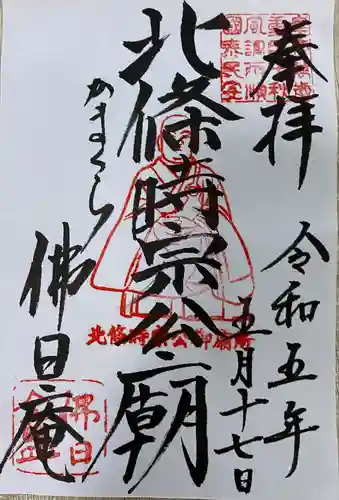 奉拝
令和五年
五月十七日
北條時宗公廟
かまくら
佛日庵
北條時宗公御廟所